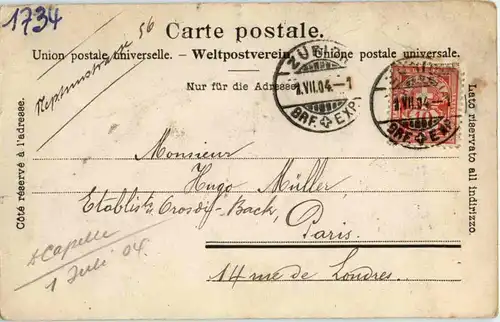 1734
Carte postale.
Union postale universelle. – Weltpostverein. – Unione postale universale.
Nur für die Adresse.
Côté réservé à l'adresse.
Lato riservato all indirizzo.
Neptunstrasse 56
ZÜRICH
1.VII.04.–1
BRF. EXP.
1.VII.04.–1
BRF. EXP.
Monsieur
Hugo Müller,
Etablists. Crosdif-Back,
Paris.
14 rue de Londres.
Capelle
1 Juli 04.